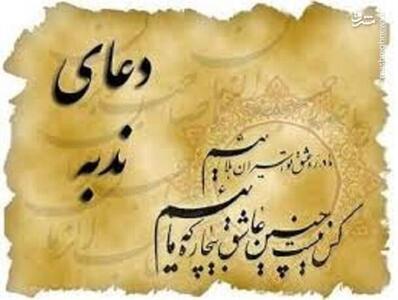 دعای
ندبه
ما در ره عشق تو اسیران بلاییم
کس نیست چنین عاشق بیچاره که ماییم